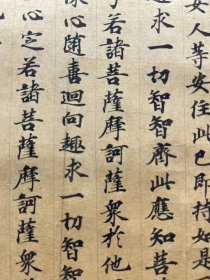 女人等安住此已即持如是
趣求一切智智齊此應知菩
若諸菩薩摩訶薩衆於他
俱心隨喜迴向趣求一切智智
心定若諸菩薩摩訶薩衆